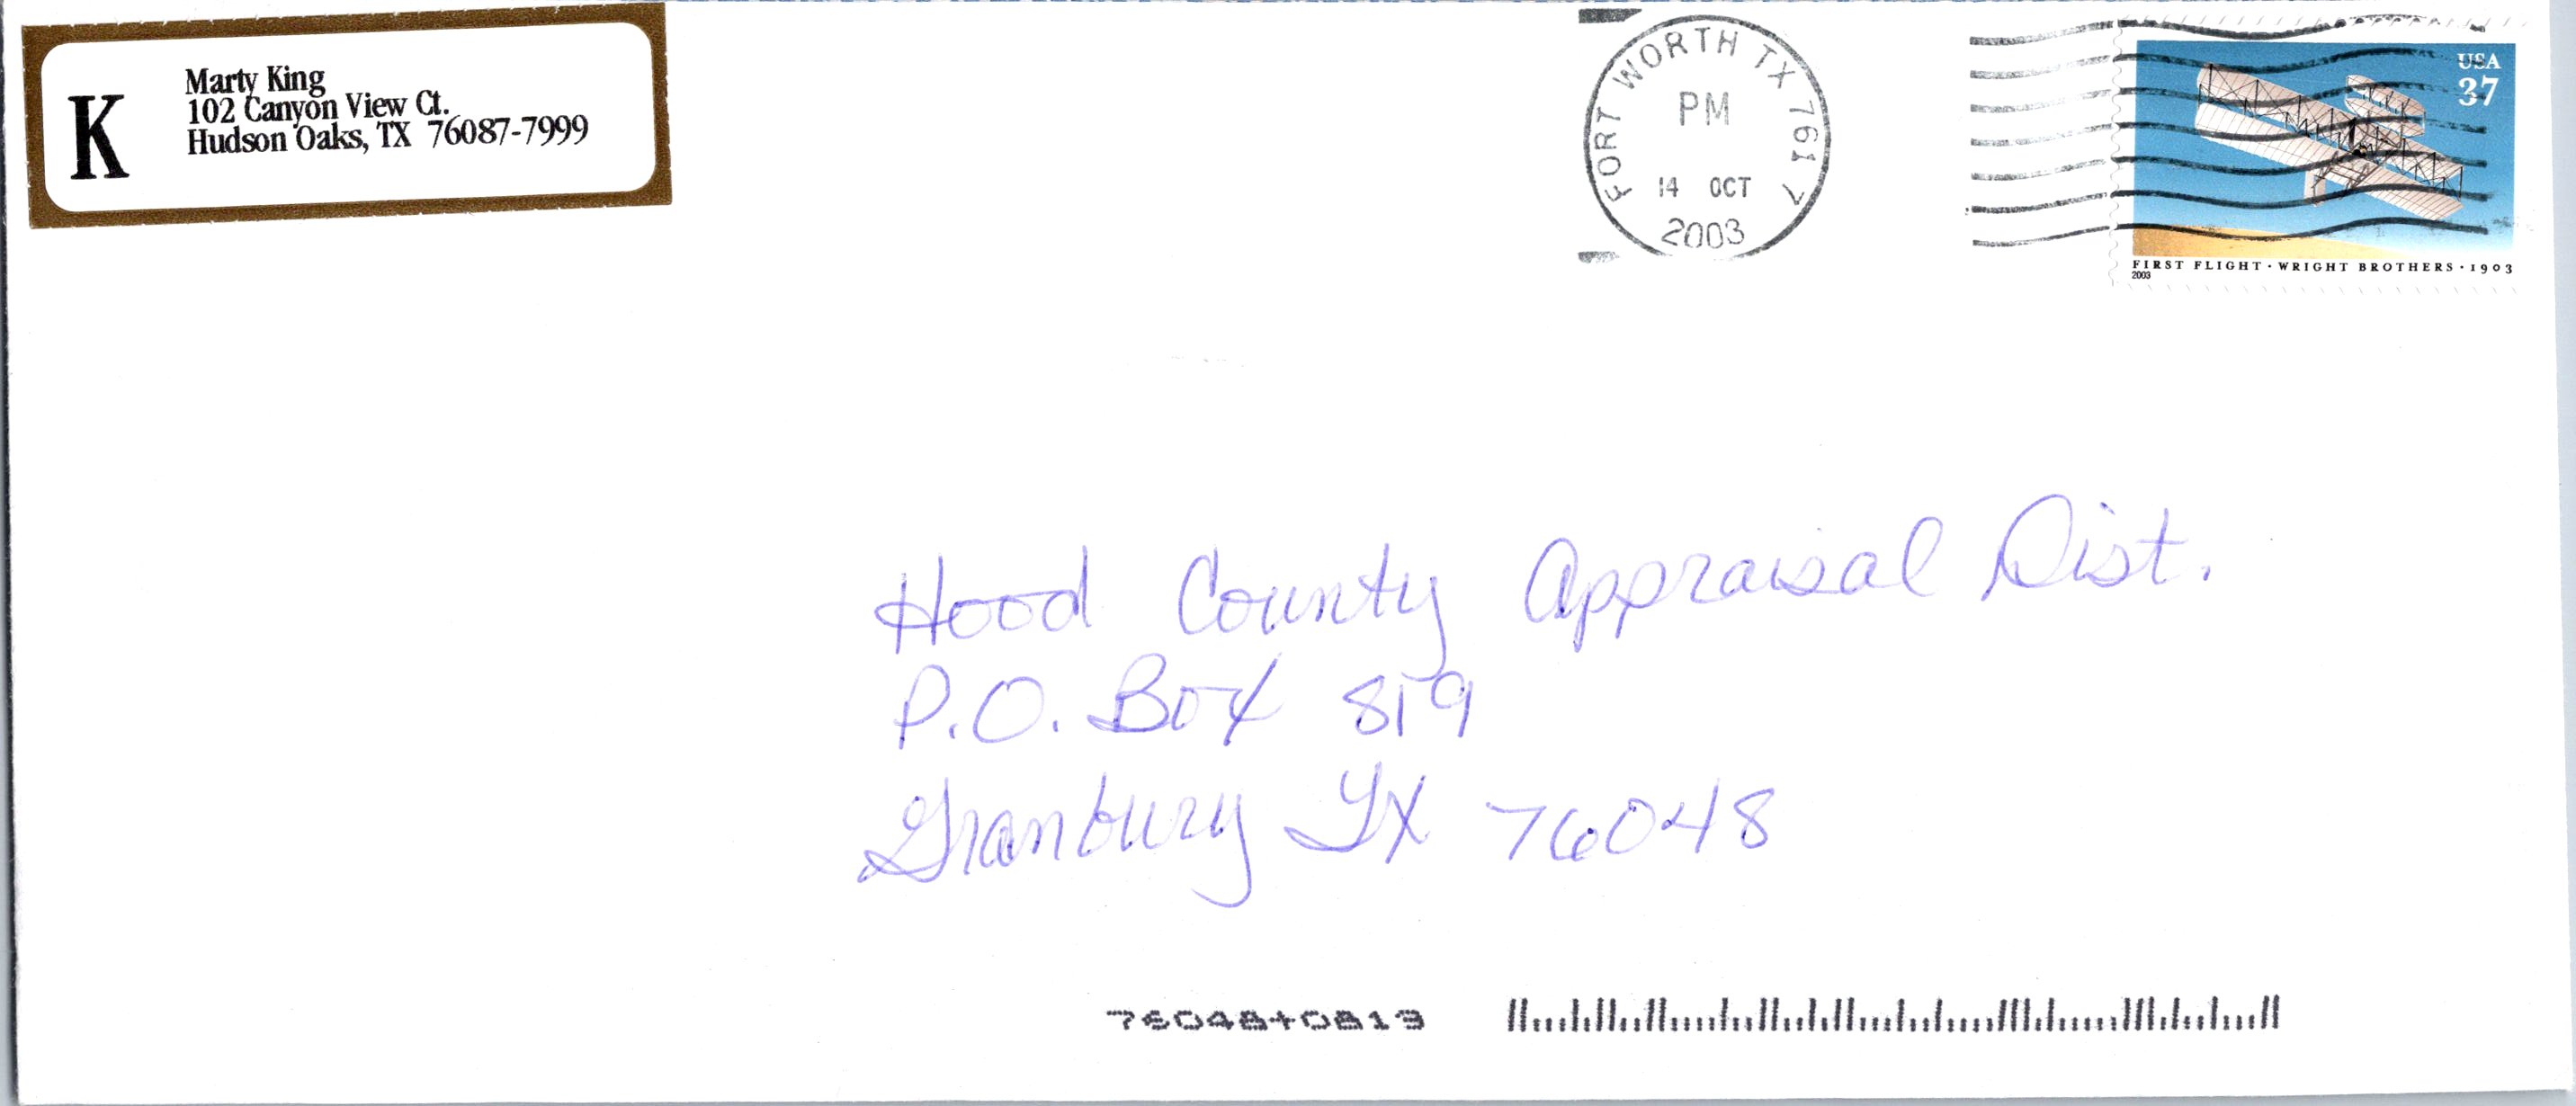 K
Marty King
102 Canyon View Ct.
Hudson Oaks, TX 76087-7999
FORT WORTH TX 761
PM
14 OCT
2003
USA
37
FIRST FLIGHT · WRIGHT BROTHERS · 1903
2003
Hood County Appraisal Dist.
P.O. Box 819
Granbury TX 76048
76048+0819